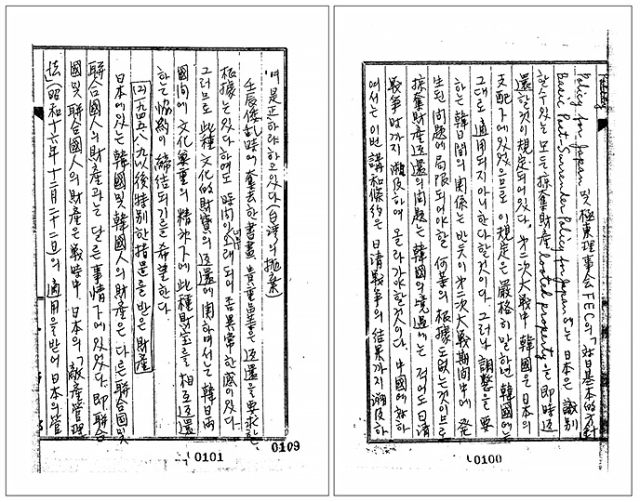 Policy for Japan 및 極東理事会 FEC의 「対日基本的方針
Basic Post-Surrender Policy for Japan에는 日本은 識別
할수있는 모든 掠奪財産 looted property을 即時返
還할것이 規定되여있다. 第二次大戰中 韓國은 日本의
支配下에 있었으므로 이規定은 嚴格히 말하면 韓國에는
그대로 適用되지 아니한다 할것이다. 그러나 調整을 要
하는 韓日間의 關係는 반듯이 第二次大戰期間中에 發
生된 問題에 局限되어야할 何等의 根據도 없는것이므로
掠奪財産返還의 問題는 韓國의 境遇에는 적어도 日清
戰爭때까지 遡及하여 올라가야 할것이다. 中國에 対하
여서는 이번 講和條約은 日清戰爭의 結果까지 遡及하
0100
여 是正하야 하고있다
壬辰倭乱時에 奪去한 書畫 貴重品等은 返還을 要求할
根據는 있다 하여도 時間이 오래되여 좀 異常한 感이 있다.
그러므로 此種 文化的財寶의 返還에 関하여서는 韓日兩
國間에 文化尊重의 精神下에 此種財宝을 相互返還
하는 協約이 締結되기를 希望한다
(2) 一九四五、八、九 以後 特別한 을 받은 財産
日本에 있는 韓國 및 韓國人의 財産은 다른 聯合國 및
聯合國人의 財産과는 달은 事情下에 있었다. 即 聯合
國 및 聯合國人의 財産은 戰時中 日本의 「敵産管理
法」(昭和十六年十二月二十二日)의 適用을 받어 日本의 管
0101
0109